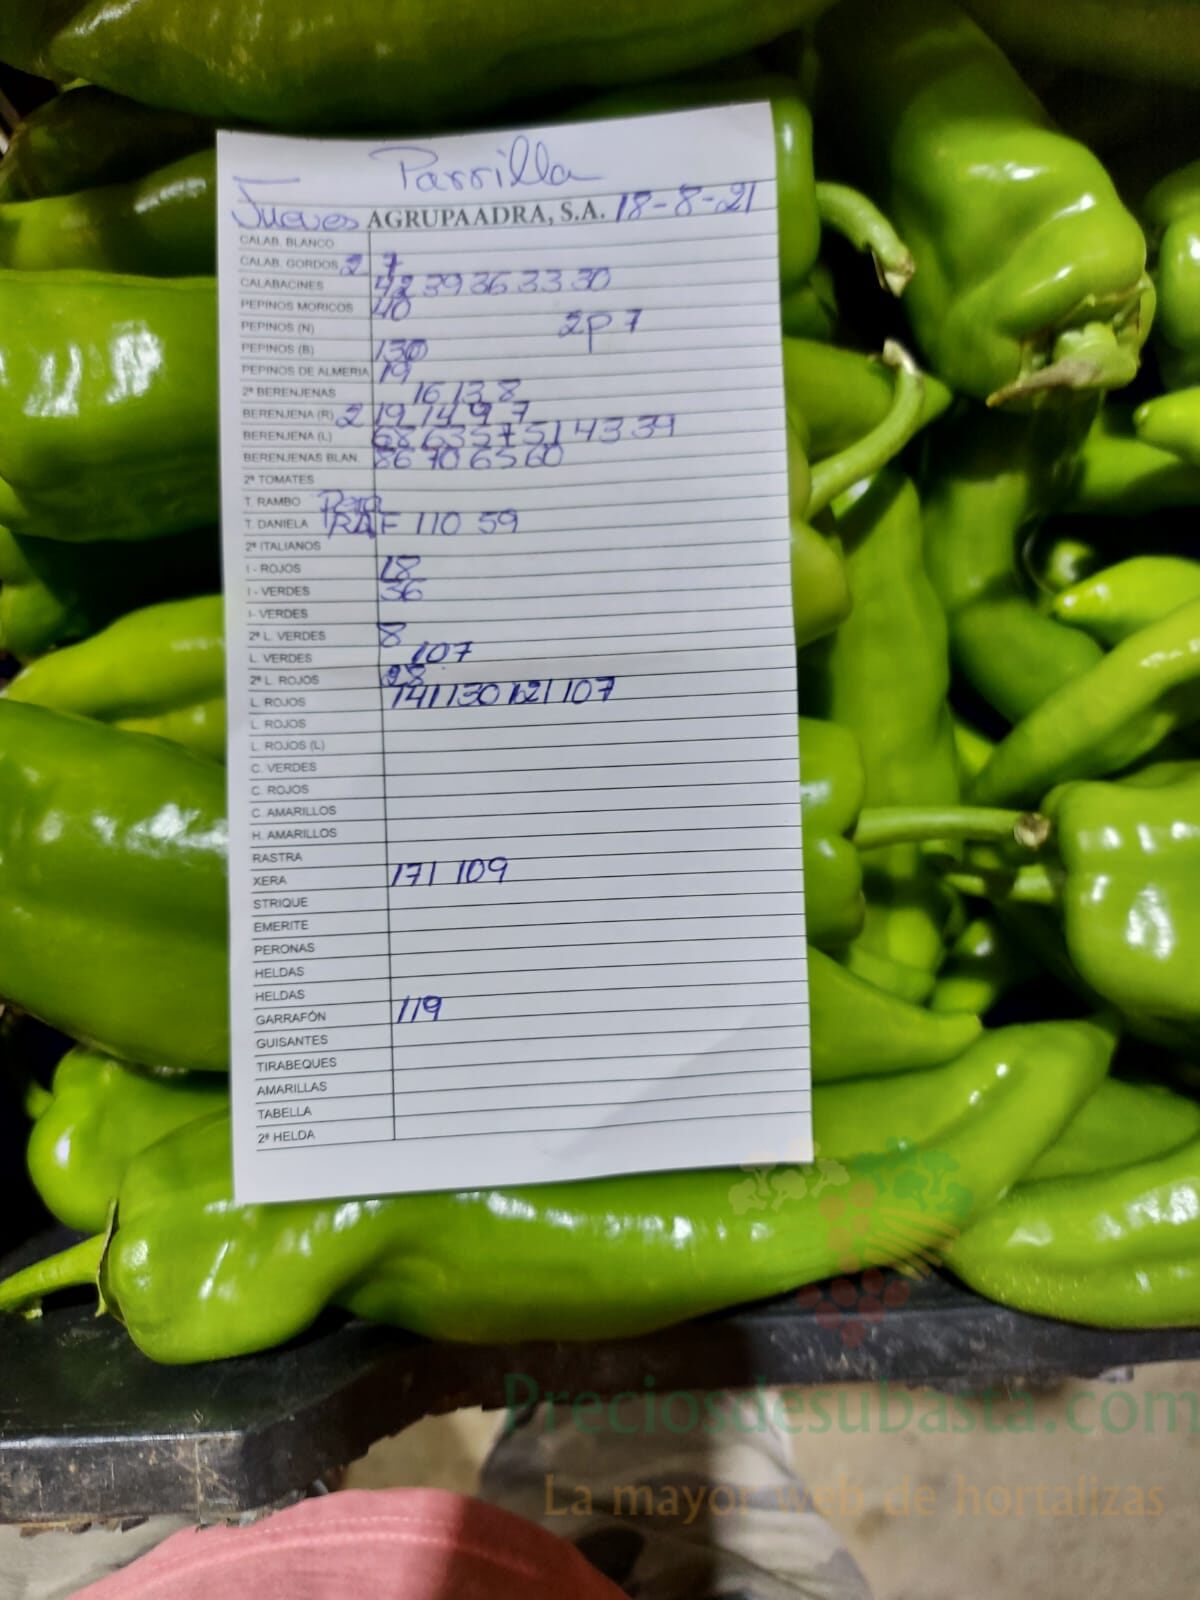 Parrilla
Jueves AGRUPAADRA, S.A. 18-8-21
CALAB. BLANCO
CALAB. GORDOS 2 7
CALABACINES 42 39 36 33 30
PEPINOS MORICOS 40
PEPINOS (N) 2p 7
PEPINOS (B) 130
PEPINOS DE ALMERIA 19
2ª BERENJENAS 16 13 8
BERENJENA (R) 2 19 14 9 7
BERENJENA (L) 68 63 57 51 43 39
BERENJENAS BLAN. 86 70 65 60
2ª TOMATES
T. RAMBO Pera
T. DANIELA RAF 110 59
2ª ITALIANOS
I - ROJOS 18
I - VERDES 36
I- VERDES
2ª L. VERDES 8
L. VERDES 107
2ª L. ROJOS 28
L. ROJOS 141 130 121 107
L. ROJOS
L. ROJOS (L)
C. VERDES
C. ROJOS
C. AMARILLOS
H. AMARILLOS
RASTRA
XERA 171 109
STRIQUE
EMERITE
PERONAS
HELDAS
HELDAS
GARRAFÓN 119
GUISANTES
TIRABEQUES
AMARILLAS
TABELLA
2ª HELDA
Preciosdesubasta.com
La mayor web de hortalizas